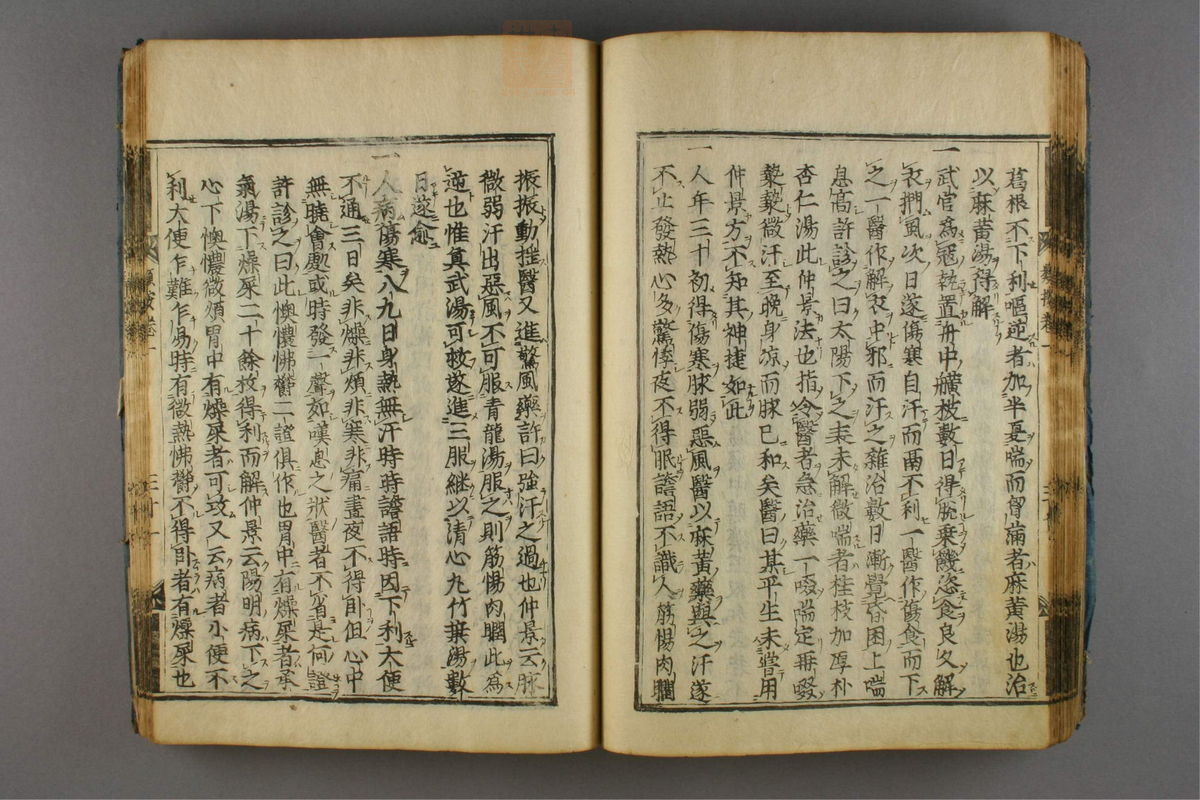 葛根不下利嘔逆者加半夏喘而胷滿者麻黄湯也治
以麻黄湯得解
一武官爲冦執置舟中艎板數日得脫乘饑恣食良久解
衣捫風次日遂傷寒自汗而鬲不利一醫作傷食而下
之一醫作解衣中邪而汗之雜治數日漸覺昏困上喘
息髙許診之曰太陽下之表未解微喘者桂枝加厚朴
杏仁湯此仲景法也指令醫者急治藥一啜喘定再啜
漐漐微汗至晚身凉而脉已和矣醫曰某平生未嘗用
仲景方不知其神捷如此
一人年三十初得傷寒脉弱惡風醫以麻黄藥與之汗遂
不止發熱心多驚悸夜不得眠譫語不識人筋惕肉瞤
振振動揺醫又進驚風藥許曰強汗之過也仲景云脉
微弱汗出惡風不可服青龍湯服之則筋惕肉瞤此爲
逆也惟真武湯可救遂進三服継以清心丸竹葉湯數
日遂愈
一人病傷寒八九日身熱無汗時時譫語時因下利大便
不通三日矣非燥非煩非寒非痛晝夜不得卧但心中
無曉會處或時發一聲如嘆息之狀醫者不省是何證
許診之曰此懊憹怫鬱二證俱作也胃中有燥屎者承
氣湯下燥屎二十餘枚得利而解仲景云陽明病下之
心下懊憹微煩胃中有燥屎者可攻又云病者小便不
利大便乍難乍易時有微熱怫鬱不得卧者有燥屎也